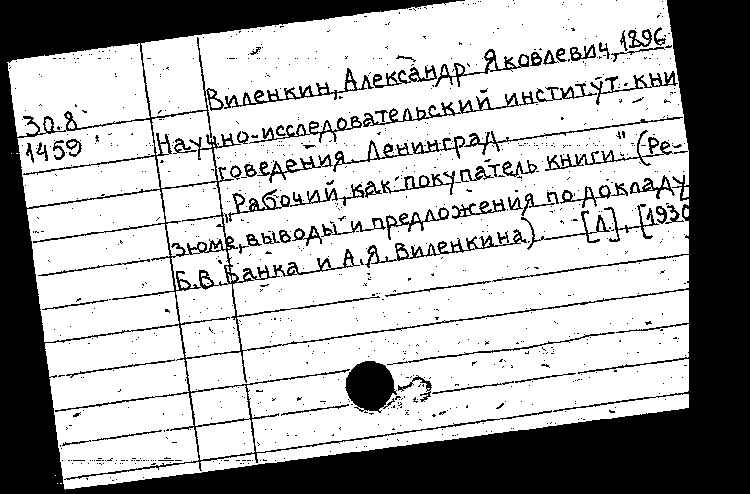 Виленкин, Александр Яковлевич, 1896
30.8
1459
Научно-исследовательский институт кни
говедения. Ленинград.
"Рабочий, как покупатель книги." (Ре-
зюме, выводы и предложения по докладу
Б.В. Банка и А.Я. Виленкина). [Л.], [1930